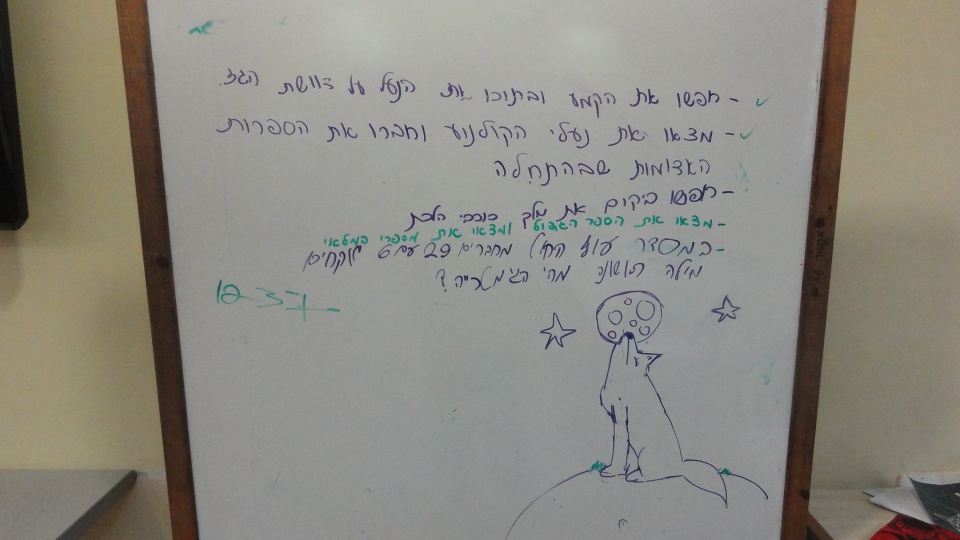 - חפשו את הקמע ובתוכו את הנעל על דוושת הגז.
- מצאו את נעלי הקולנוע וחברו את הספרות
האדומות שבהתחלה
- חפשו ביקום את מלך כוכבי הלכת
- מצאו את הספר הגדול ומצאו את מספרי המלאי
- במסדר עוף החול מחברים 29 עם 6 לוקחים
מילה ראשונה מהי הגימטרייה?